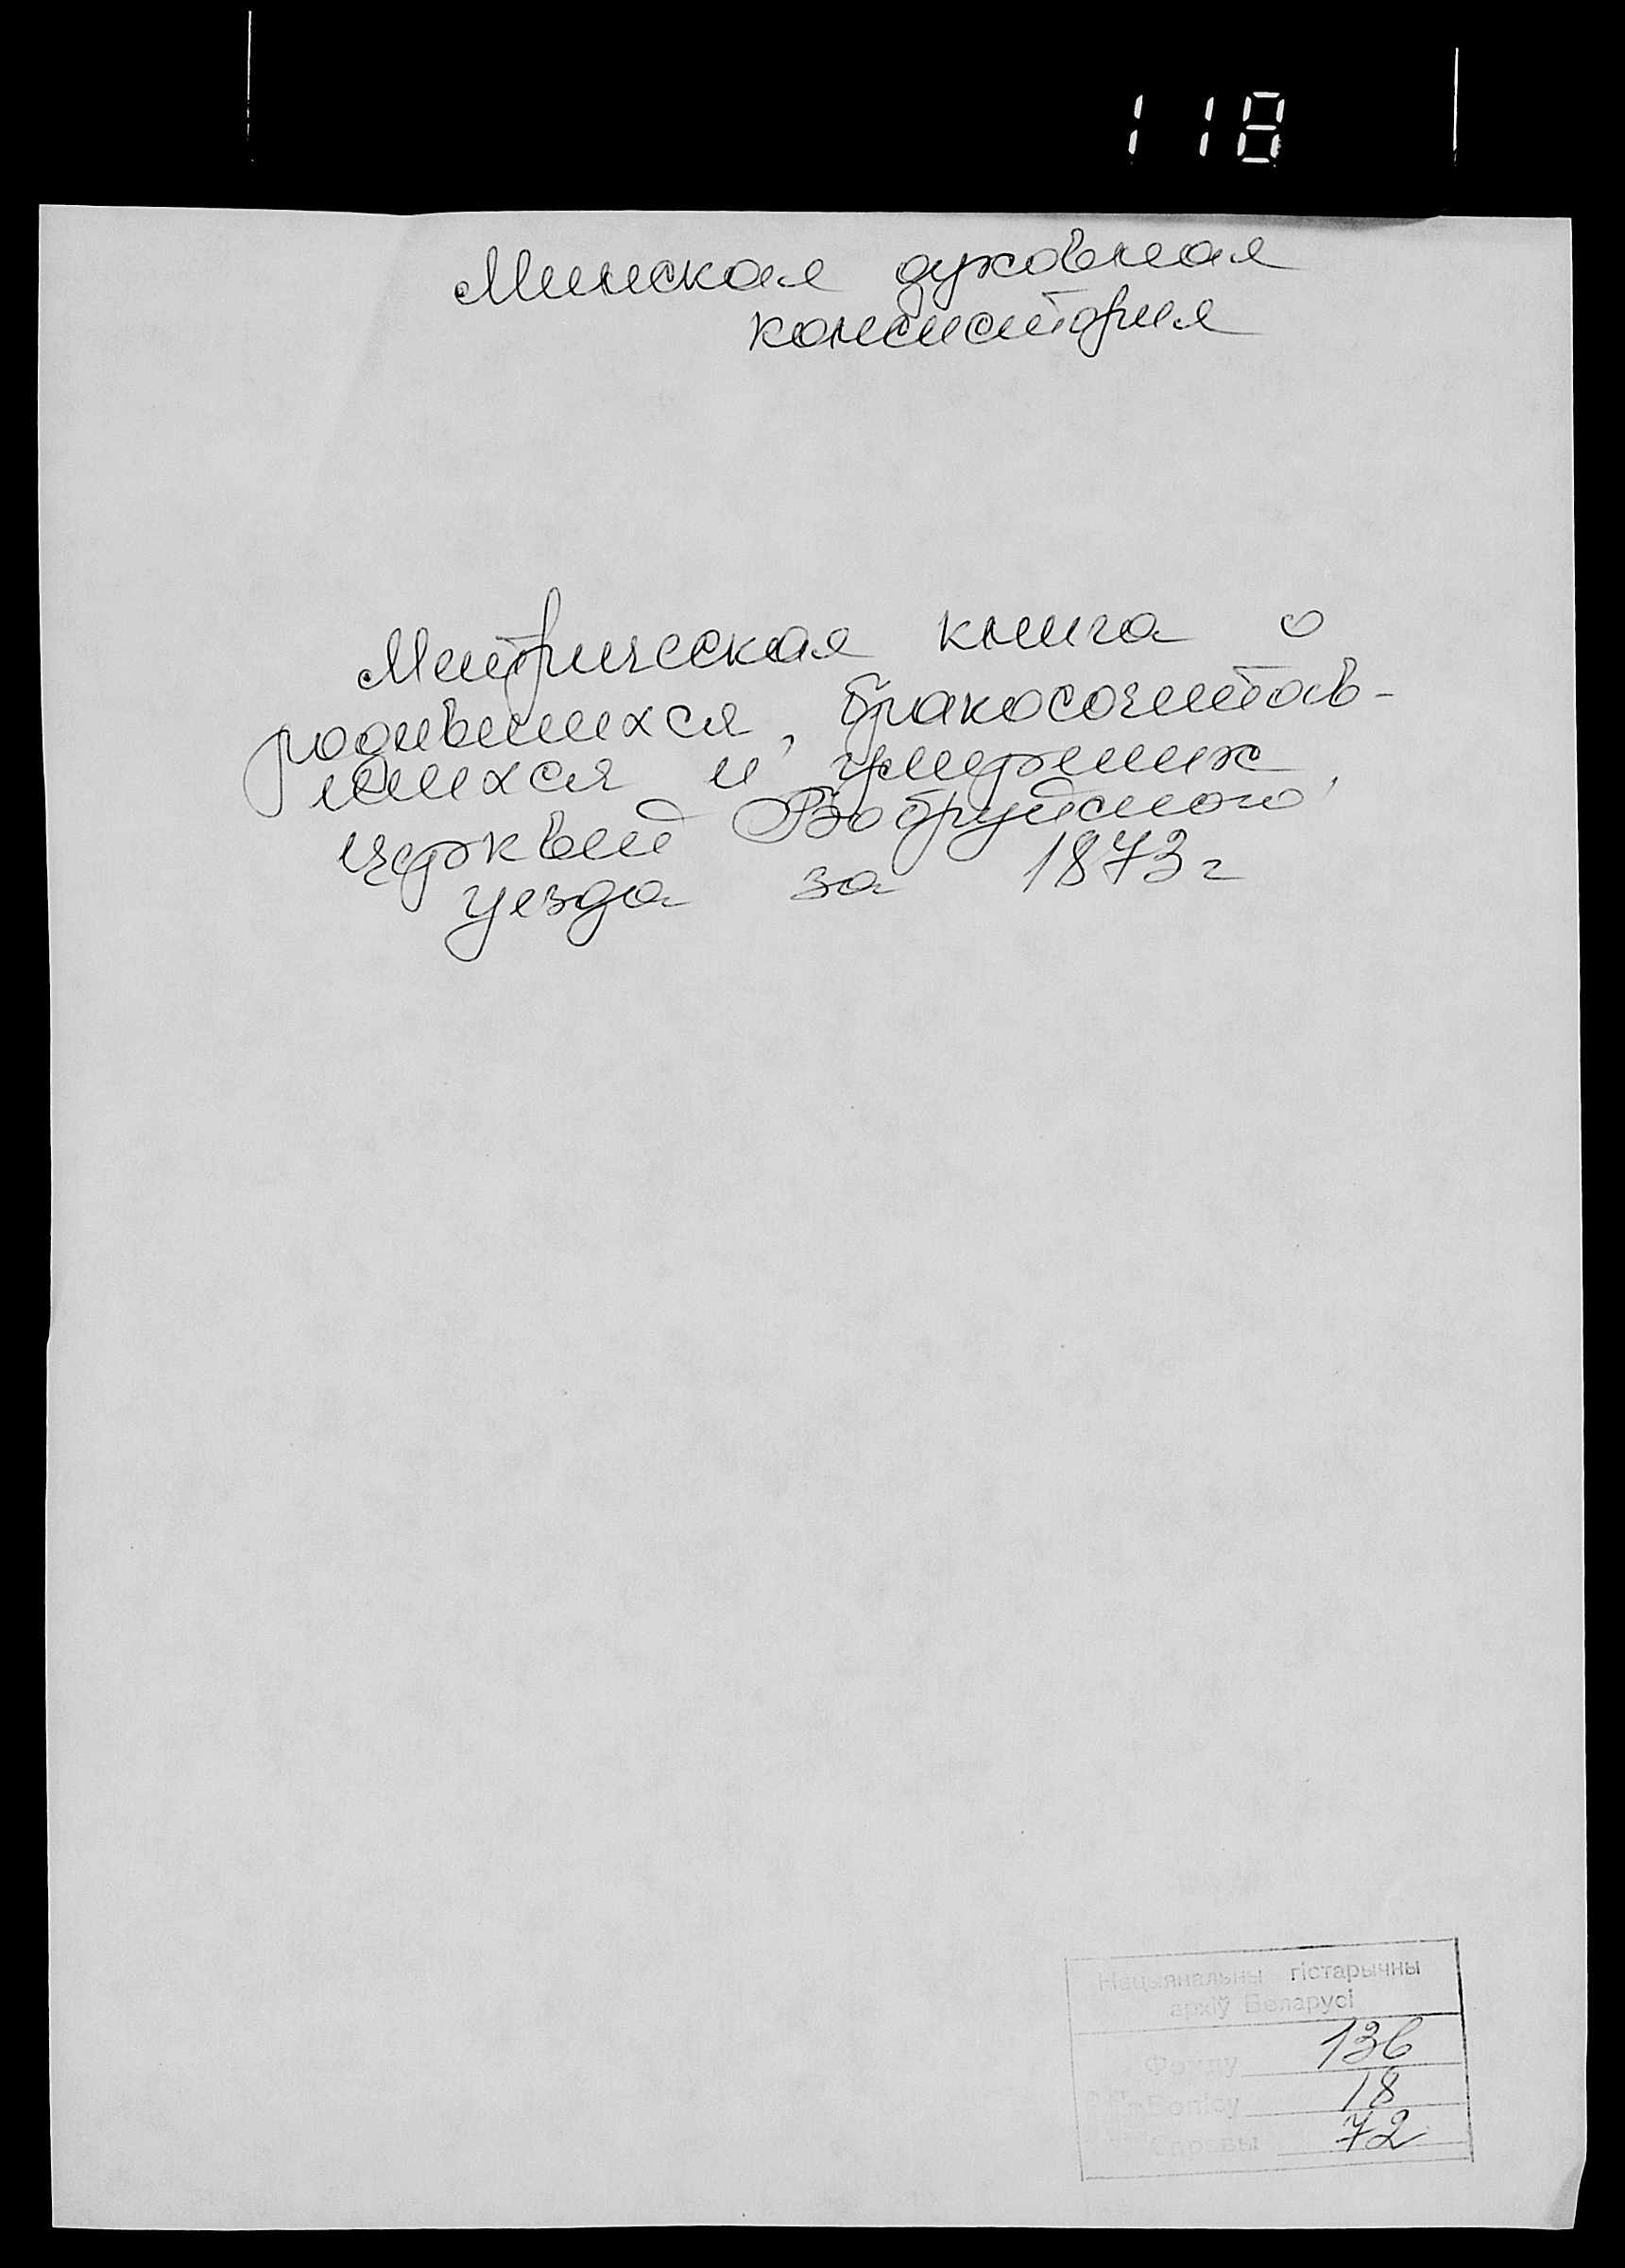 118
Минская духовная
консистория
Метрическая книга о
родившихся, бракосочетав-
шихся и умерших
церквей Бобруйского
уезда за 1873 г
Нацыянальны гістарычны
архіў Беларусі
Фонду 136
Вопісу 18
Справы 72